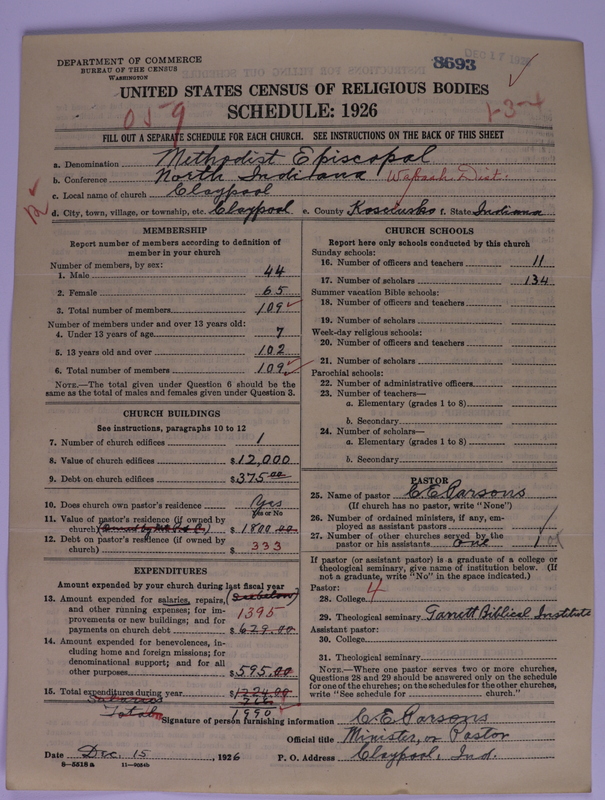 DEPARTMENT OF COMMERCE
BUREAU OF THE CENSUS
WASHINGTON
8693
DEC 17 1926
UNITED STATES CENSUS OF RELIGIOUS BODIES
SCHEDULE: 1926
059
1-3-4
FILL OUT A SEPARATE SCHEDULE FOR EACH CHURCH. SEE INSTRUCTIONS ON THE BACK OF THIS SHEET
a. Denomination Methodist Episcopal
b. Conference North Indiana Wabash Dist.
c. Local name of church Claypool
d. City, town, village, or township, etc. Claypool e. County Kosciusko f. State Indiana
MEMBERSHIP
Report number of members according to definition of
member in your church
Number of members, by sex:
1. Male 44
2. Female 65
3. Total number of members 109
Number of members under and over 13 years old:
4. Under 13 years of age 7
5. 13 years old and over 102
6. Total number of members 109
NOTE.—The total given under Question 6 should be the
same as the total of males and females given under Question 3.
CHURCH BUILDINGS
See instructions, paragraphs 10 to 12
7. Number of church edifices 1
8. Value of church edifices $12,000
9. Debt on church edifices $375.00
10. Does church own pastor's residence Yes
Yes or No
11. Value of pastor's residence (if owned by
church) $1800.00
12. Debt on pastor's residence (if owned by
church) $333
EXPENDITURES
Amount expended by your church during last fiscal year
13. Amount expended for salaries, repairs, (See below)
and other running expenses; for im- 1395
provements or new buildings; and for
payments on church debt $629.00
14. Amount expended for benevolences, in-
cluding home and foreign missions; for
denominational support; and for all
other purposes $595.00
15. Total expenditures during year $1224.00
Salaries 766
Total 1990
CHURCH SCHOOLS
Report here only schools conducted by this church
Sunday schools:
16. Number of officers and teachers 11
17. Number of scholars 134
Summer vacation Bible schools:
18. Number of officers and teachers
19. Number of scholars
Week-day religious schools:
20. Number of officers and teachers
21. Number of scholars
Parochial schools:
22. Number of administrative officers
23. Number of teachers—
a. Elementary (grades 1 to 8)
b. Secondary
24. Number of scholars—
a. Elementary (grades 1 to 8)
b. Secondary
PASTOR
25. Name of pastor C. E. Parsons
(If church has no pastor, write "None")
26. Number of ordained ministers, if any, em-
ployed as assistant pastors
27. Number of other churches served by the
pastor or his assistants one 1
If pastor (or assistant pastor) is a graduate of a college or
theological seminary, give name of institution below. (If
not a graduate, write "No" in the space indicated.)
Pastor: 4
28. College
29. Theological seminary Garrett Biblical Institute
Assistant pastor:
30. College
31. Theological seminary
NOTE.—Where one pastor serves two or more churches,
Questions 28 and 29 should be answered only on the schedule
for one of the churches; on the schedules for the other churches,
write "See schedule for church."
Signature of person furnishing information C. E. Parsons
Official title Minister, or Pastor
Date Dec. 15, 1926 P. O. Address Claypool, Ind.
8—5518 a 11—9054b